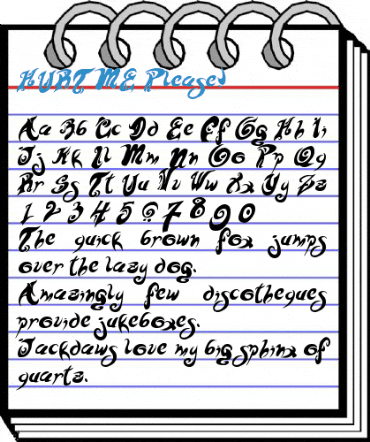 HURT ME Please!
Aa Bb Cc Dd Ee Ff Gg Hh Ii
Jj Kk Ll Mm Nn Oo Pp Qq
Rr Ss Tt Uu Vv Ww Xx Yy Zz
1 2 3 4 5 6 7 8 9 0
The quick brown fox jumps
over the lazy dog.
Amazingly few discotheques
provide jukeboxes.
Jackdaws love my big sphinx of
quartz.